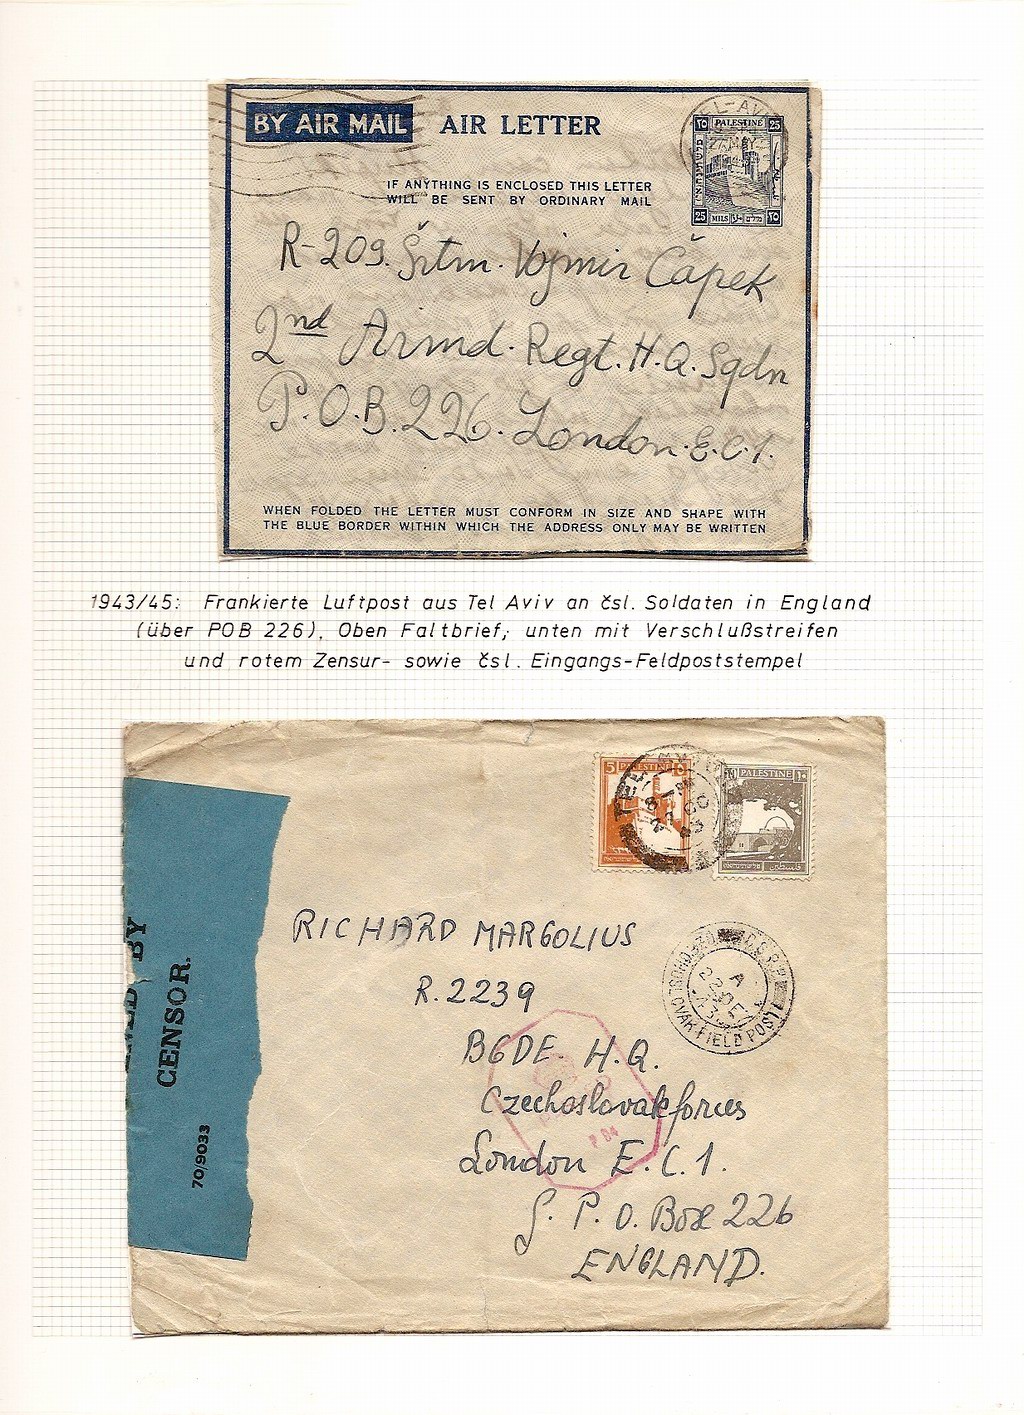 BY AIR MAIL AIR LETTER
TEL-AVIV
٢٥ PALESTINE 25
25 MILS מילים ٢٥
IF ANYTHING IS ENCLOSED THIS LETTER
WILL BE SENT BY ORDINARY MAIL
R-209. Šrtm. Vojmir Čapek
2nd Armd. Regt. H.Q. Sqdn
P.O.B. 226. London. E.C.1.
WHEN FOLDED THE LETTER MUST CONFORM IN SIZE AND SHAPE WITH
THE BLUE BORDER WITHIN WHICH THE ADDRESS ONLY MAY BE WRITTEN
1943/45: Frankierte Luftpost aus Tel Aviv an čsl. Soldaten in England
(über POB 226). Oben Faltbrief, unten mit Verschlußstreifen
und rotem Zensur- sowie čsl. Eingangs-Feldpoststempel
5 PALESTINE ٥
PALESTINE ١٠
BY
CENSOR.
70/9033
RICHARD MARGOLIUS
R. 2239
BGDE. H.Q.
Czechoslovakforces
London E.C.1.
G.P.O. Box 226
ENGLAND.
A
22 DE
FIELD POST